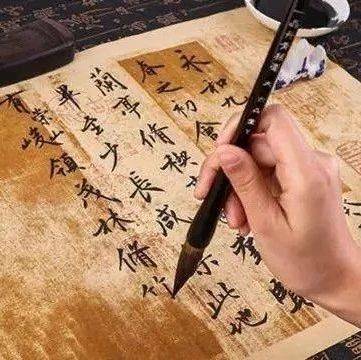 永和九
春之初會
蘭亭脩稧羣賢
畢至少長咸此地
有崇山峻領茂林脩竹